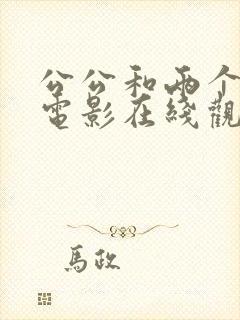 公公和两个
电影在线觀
馬政